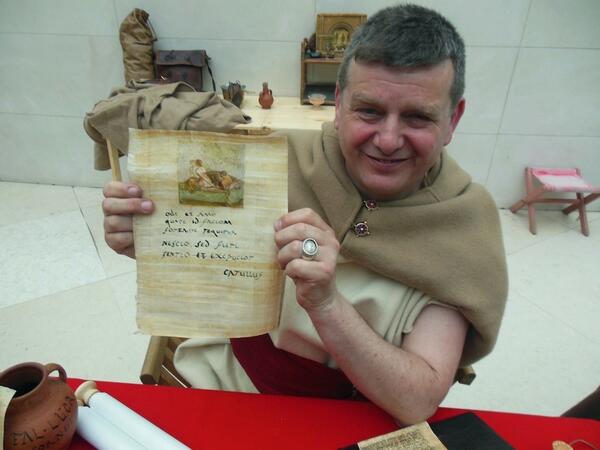 ODI ET AMO
QUARE ID FACIAM
FORTASSE REQUIRIS
NESCIO SED FIERI
SENTIO ET EXCRUCIOR
CATULLUS
FAL·